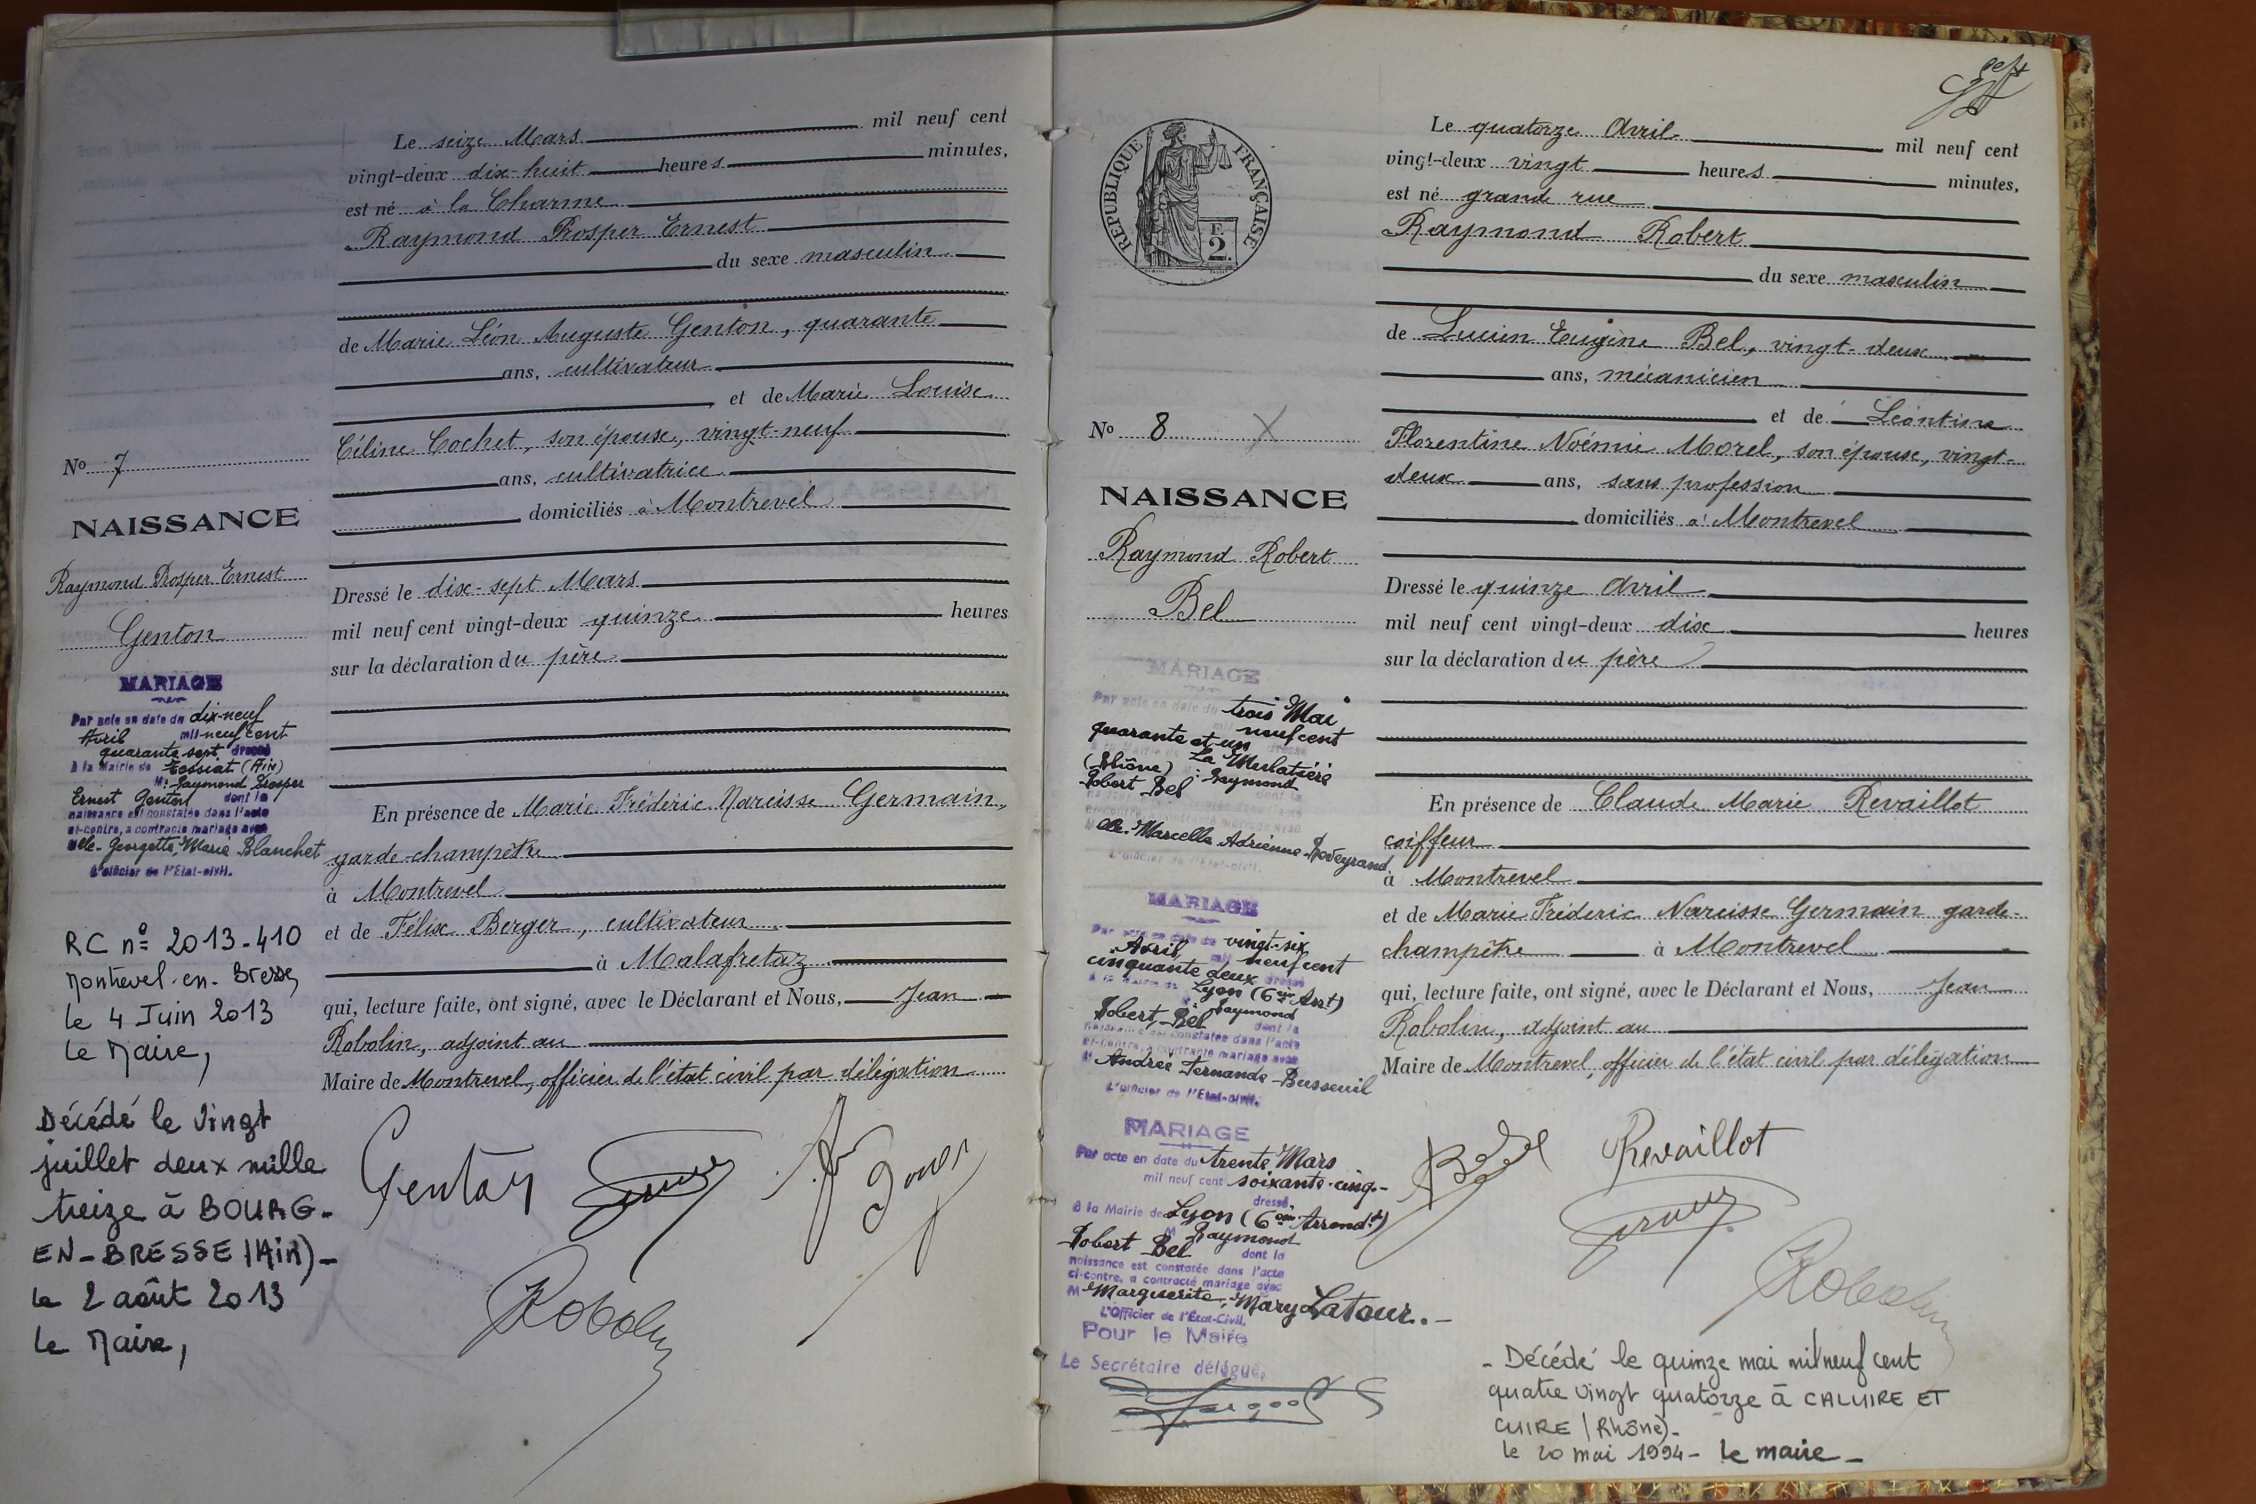 Le seize Mars mil neuf cent
vingt-deux dix-huit heures minutes,
est né à la Charme
Raymond Prosper Ernest
du sexe masculin
de Marie Léon Auguste Genton, quarante
ans, cultivateur
et de Marie Louise
Céline Cochet, son épouse, vingt-neuf
ans, cultivatrice
domiciliés à Montrevel
Dressé le dix-sept Mars
mil neuf cent vingt-deux quinze heures
sur la déclaration du père
En présence de Marie Fréderic Narcisse Germain,
garde-champêtre
à Montrevel
et de Félix Berger, cultivateur
à Malafretaz
qui, lecture faite, ont signé, avec le Déclarant et Nous, Jean
Robolin, adjoint au
Maire de Montrevel, officier de l'état civil par délégation
Genton
Robolin
No 7
NAISSANCE
Raymond Prosper Ernest
Genton
MARIAGE
Par acte en date du dix-neuf
Avril mil neuf cent
quarante sept dressé
à la Mairie de (Ain)
M. Raymond Prosper
Ernest Genton dont la
naissance est constatée dans l'acte
ci-contre, a contracté mariage avec
Mlle Georgette, Marie Blanchet
L'officier de l'Etat-civil.
RC no 2013-410
Montrevel-en-Bresse,
le 4 Juin 2013
Le Maire,
Décédé le vingt
juillet deux mille
treize à BOURG-
EN-BRESSE (Ain)-
le 2 août 2013
Le Maire,
sept
REPUBLIQUE FRANÇAISE
F.
2.
No 8 X
NAISSANCE
Raymond Robert
Bel
MARIAGE
Par acte en date du trois Mai
mil neuf cent
quarante et un dressé
La Mulatière
(Rhône) Raymond
Robert Bel dont la
Mlle Marcelle Adrienne Reveyrand
L'officier de l'Etat-civil.
MARIAGE
Par acte en date du vingt-six
Avril mil neuf cent
cinquante deux dressé
à la Mairie de Lyon (6ème Arrt)
M Raymond
Robert Bel dont la
naissance est constatée dans l'acte
ci-contre, a contracté mariage avec
M Andrée Fernande Busseuil
L'officier de l'Etat-civil.
MARIAGE
Par acte en date du trente Mars
mil neuf cent soixante-cinq-
dressé
à la Mairie de Lyon (6ème Arrondt)
M Raymond
Robert Bel dont la
naissance est constatée dans l'acte
ci-contre, a contracté mariage avec
M Marguerite, Mary Latour.-
L'Officier de l'État-Civil.
Pour le Maire
Le Secrétaire délégué,
Le quatorze Avril mil neuf cent
vingt-deux vingt heures minutes,
est né grande rue
Raymond Robert
du sexe masculin
de Lucien Eugène Bel, vingt-deux
ans, mécanicien
et de Léontine
Florentine Noémie Morel, son épouse, vingt-
deux ans, sans profession
domiciliés à Montrevel
Dressé le quinze Avril
mil neuf cent vingt-deux dix heures
sur la déclaration du père
En présence de Claude Marie Revaillot
coiffeur
à Montrevel
et de Marie Fréderic Narcisse Germain garde-
champêtre à Montrevel
qui, lecture faite, ont signé, avec le Déclarant et Nous, Jean
Robolin, adjoint au
Maire de Montrevel, officier de l'état civil par délégation
Bel Revaillot
Robolin
- Décédé le quinze mai mil neuf cent
quatre vingt quatorze à CALUIRE ET
CUIRE (Rhône)-
le 20 mai 1994- Le maire-